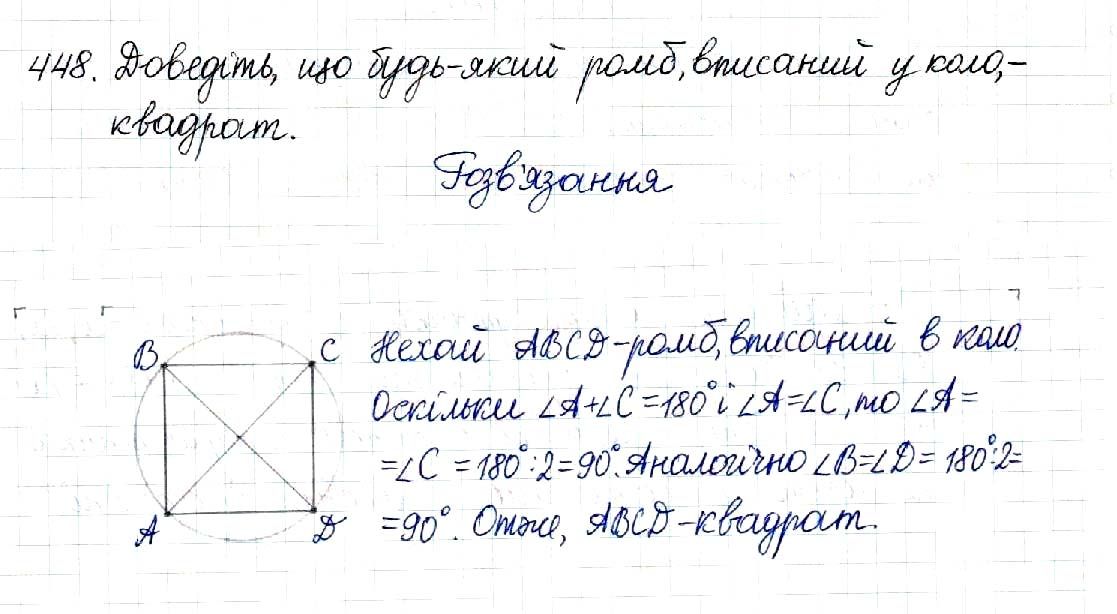 448. Доведіть, що будь-який ромб, вписаний у коло, -
квадрат.
Розв'язання
B
C
A
D
Нехай ABCD-ромб, вписаний в коло.
Оскільки ∠A+∠C=180° і ∠A=∠C, то ∠A=
=∠C=180°:2=90°. Аналогічно ∠B=∠D=180°:2=
=90°. Отже, ABCD-квадрат.